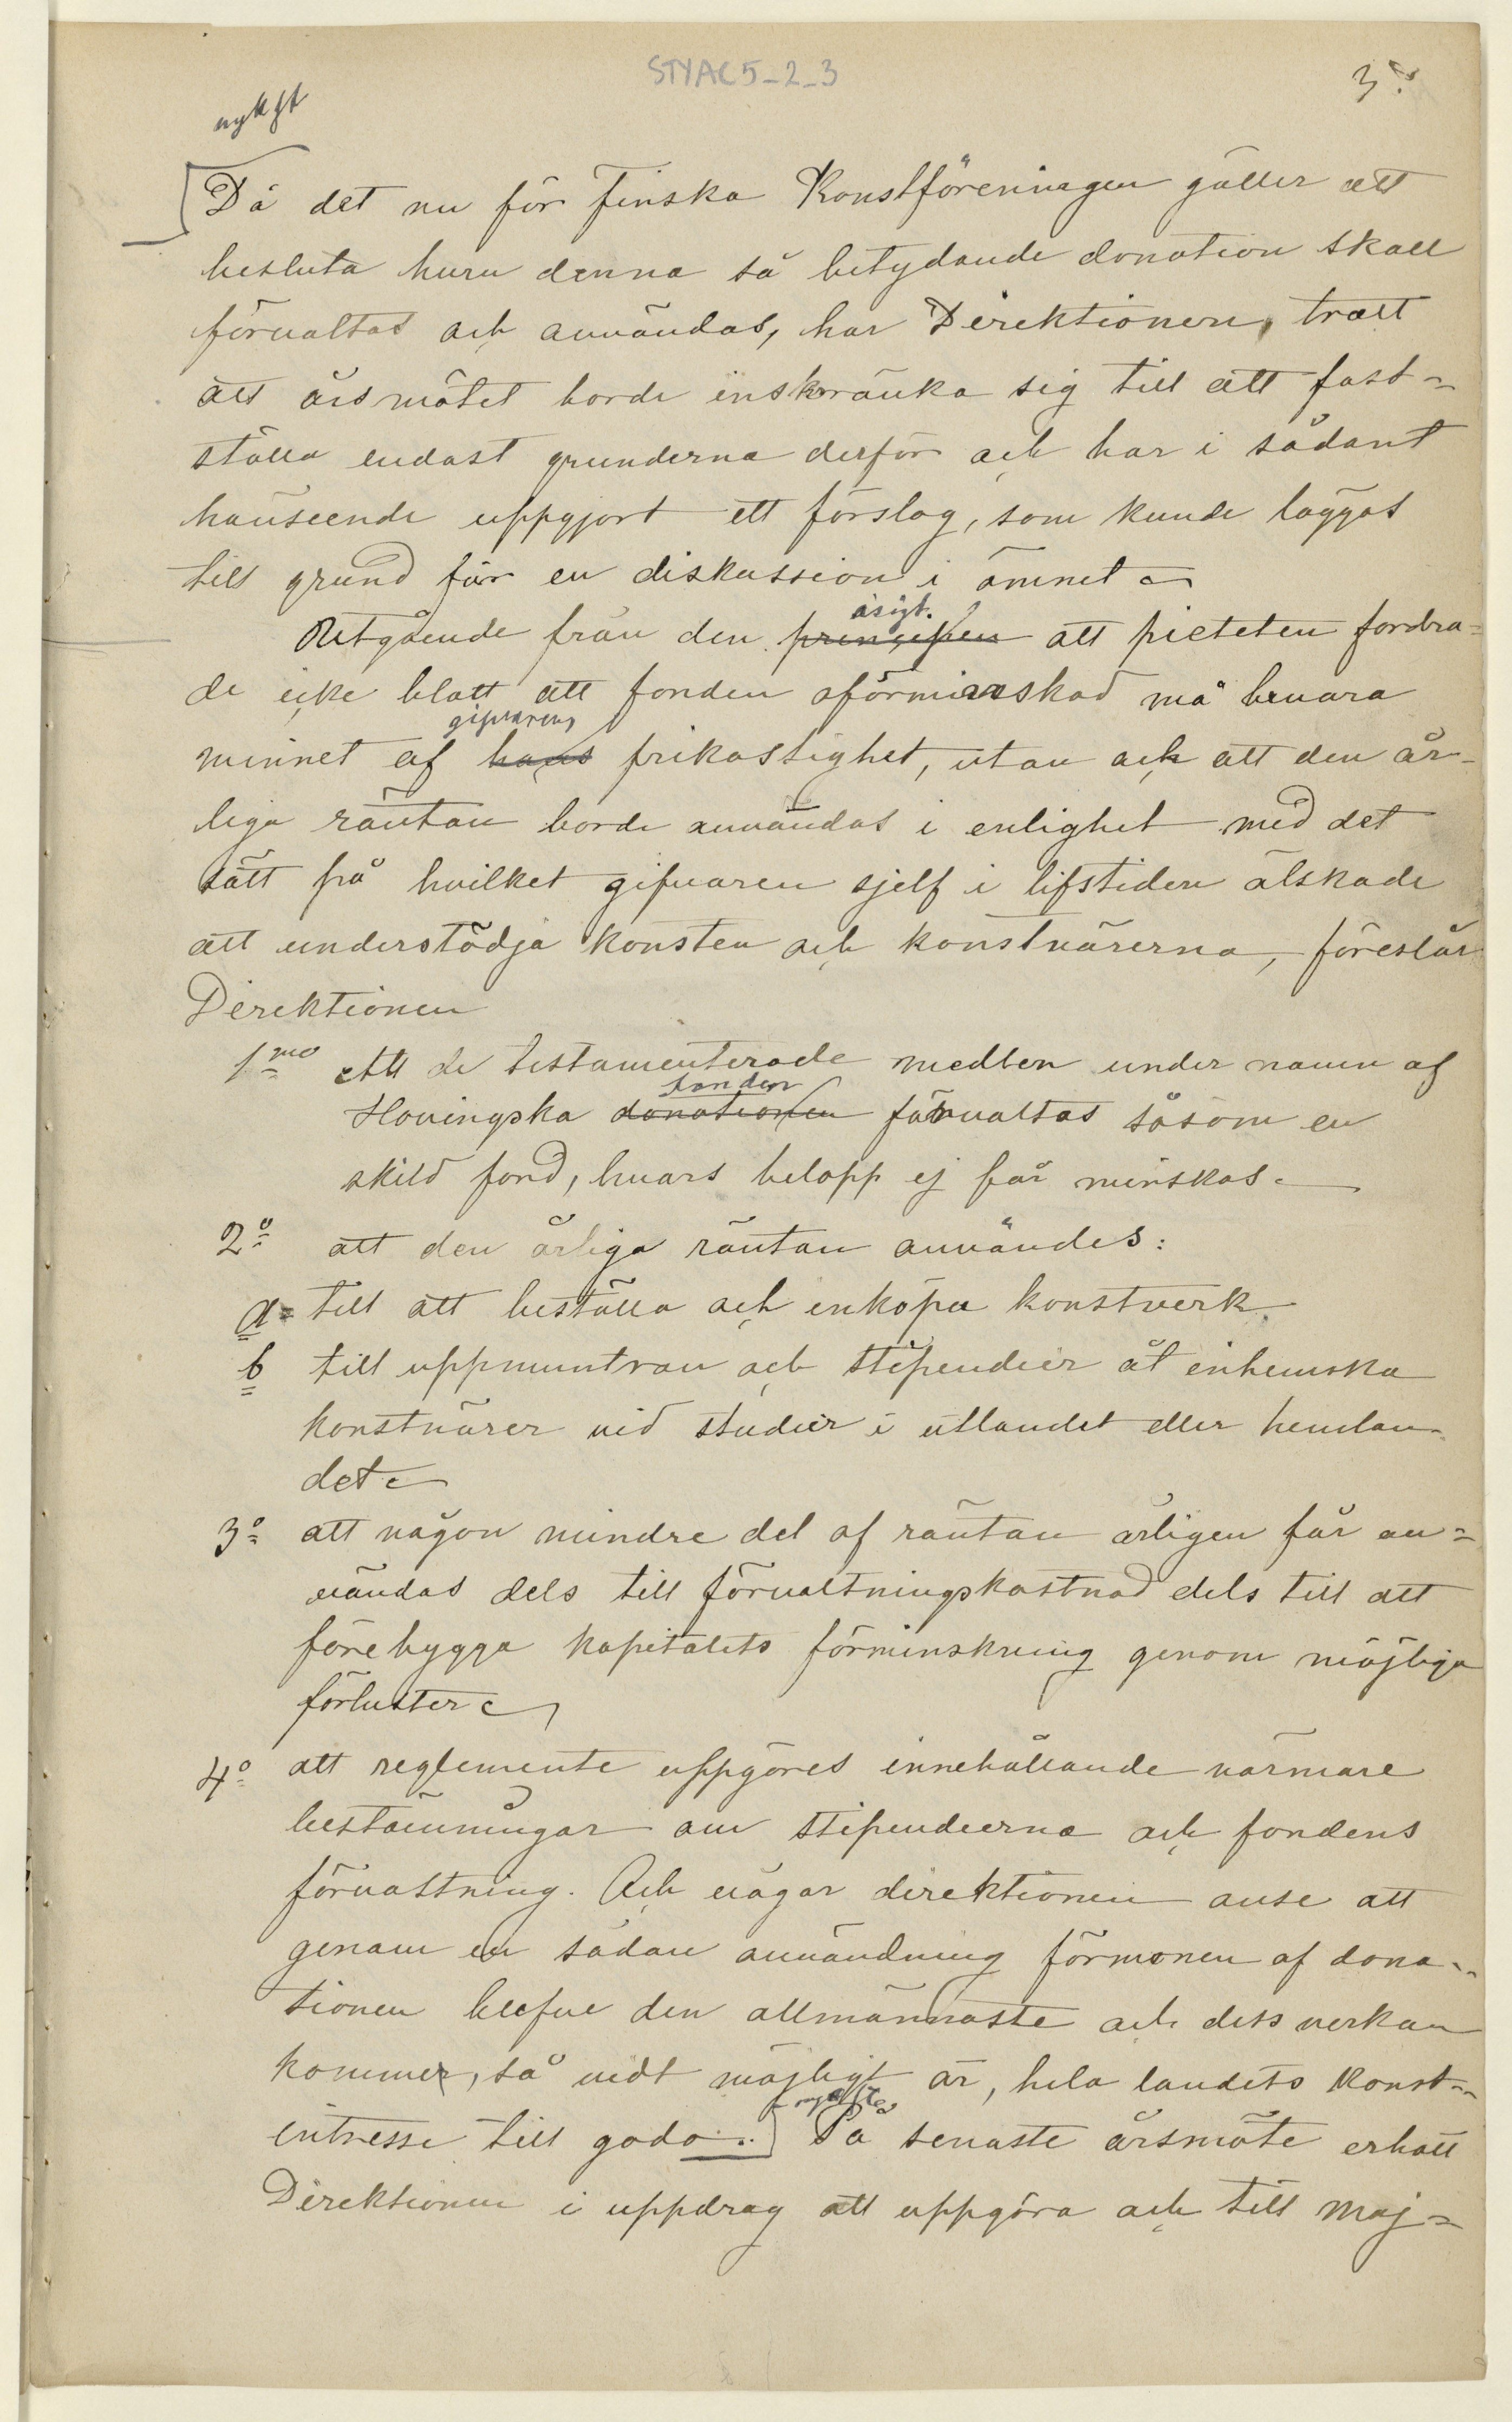 STYAC5-2-3
3
Då det nu för Finska Konstföreningen gäller att
besluta huru denna så betydande donation skall
förvaltas och användas, har Direktionen, trott
att årsmötet borde inskränka sig till att fast=
ställa endast grunderna derför och har i sådant
hänseende uppgjort ett förslag, som kunde läggas
till grund för en diskussion i ämnet.
åsigt.
Utgående från den principen att pieteten fordra=
de icke blott att fonden oförminskad må bevara
gifvarens
minnet af hans frikostighet, utan och att den år-
liga räntan borde användas i enlighet med det
sätt på hvilket gifvaren sjelf i lifstiden älskade
att understödja konsten och konstnärerna, föreslår
Direktionen
1mo Att de testamenterade medlen under namn af
fonden
Hovingska donationen förvaltas såsom en
skild fond, hvars belopp ej får minskas.
2o att den årliga räntan användes:
a= till att beställa och inköpa konstverk.
b till uppmuntran och stipendier åt inhemska
konstnärer vid studier i utlandet eller hemlan-
det.
3o att någon mindre del af räntan årligen får an=
vändas dels till förvaltningskostnad dels till att
förebygga kapitalets förminskning genom möjliga
förluster.
4o att reglemente uppgöres innehållande närmare
bestämningar om stipendierna och fondens
förvaltning. Och vågar direktionen anse att
genom en sådan användning förmonen af dona-
tionen blefve den allmännaste och dess verkan
kommer, så vidt möjligt är, hela landets konst-
intresse till godo. På senaste årsmöte erhöll
Direktionen i uppdrag att uppgöra och till maj=